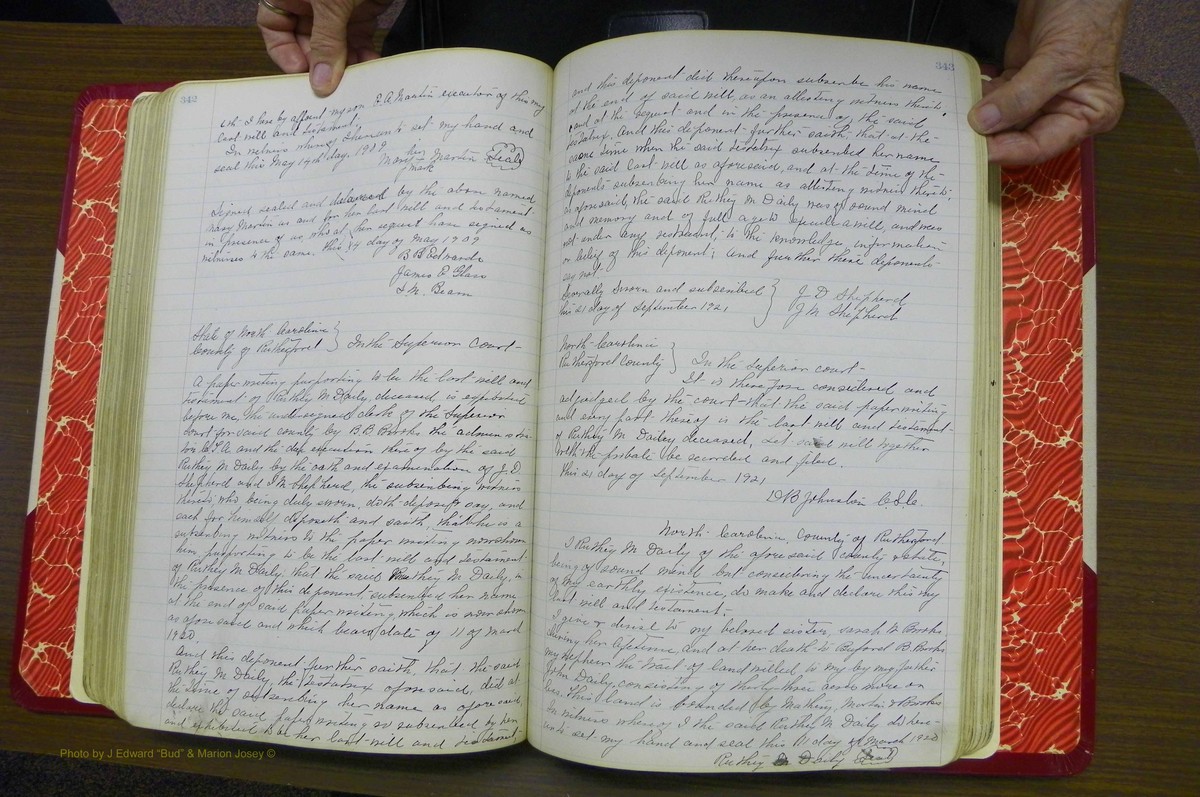 342
6th - I here by appoint my son E. A. Martin executor of this my
last will and testament.
In witness whereof I hereunto set my hand and
seal this May 14th day. 1909
her
Mary Martin (Seal)
mark
Signed sealed and delivered by the above named
Mary Martin as and for her last will and testament.
in presence of us, who at her request have signed as
witnesses to the same. this 14 day of May 1909
B B Edwards
James E Glass
S M. Beam
State of North Carolina }
County of Rutherford } In the Superior Court -
A paper writing purporting to be the last will and
testament of Ruthey M Daily, deceased is exhibited
before me, the undersigned clerk of the Superior
court for said county by B. B Brooks the adminis-
tor C.T.A. and the due execution there of by the said
Ruthey M Daily by the oath and examination of J. D.
Shepherd and J M Shepherd, the subscribing witness
thereto, who being duly sworn, doth depose & say, and
each for himself deposeth and saith, that he is a
subscribing witness to the paper writing now shown
him, purporting to be the last will and testament
of Ruthey M Daily; that the said Ruthey M. Daily, in
the presence of this deponent, subscribed her name
at the end of said paper writing, which is now shown
as aforesaid and which bears date of 11 of March
1920
And this deponent further saith, that the said
Ruthey M Daily, the testatrix aforesaid, did at
the time of subscribing her name as aforesaid
declare the said paper writing so subscribed by her
and exhibited to be her last will and testament
343
and this deponent did thereupon subscribe his name
at the end of said will, as an attesting witness thereto
and at the request and in the presence of the said
testatrix. And this deponent further saith, that at the
same time when the said testatrix subscribed her name
to the said last will as aforesaid, and at the time of the
deponents subscribing her name as attesting witness thereto
as aforesaid, the said Ruthey M Daily was of sound mind
and memory and of full age to execute a will, and was
not under any restraint, to the knowledge, information
or belief of this deponent; and further these deponents
say not.
Severally sworn and subscribed } J. D Shepherd
this 21 day of September 1921 } J. M. Shepherd
North Carolina }
Rutherford County } In the Superior court -
It is therefore considered and
adjudged by the court that the said paper writing
and every part thereof is the last will and testament
of Ruthey M Dailey deceased, Let said will together
with the probate be recorded and filed.
this 21 day of September 1921
D B Johnston C. S. C.
North Carolina, County of Rutherford
I Ruthey M Daily of the aforesaid county & state,
being of sound mind but considering the uncertainty
of my earthly existence, do make and declare this my
last will and testament. -
I give & devise to my beloved sister, Sarah N Brooks
during her lifetime, and at her death to Buford B. Brooks
my nephew the tract of land willed to my by my father
John Daily consisting of thirty three acres more or
less. This land is bounded by Matheny, Martin & Brooks
In witness whereof I the said Ruthey M Daily do here-
unto set my hand and seal this 11 day of March 1920
Ruthey M Daily (Seal)
Photo by J Edward "Bud" & Marion Josey ©